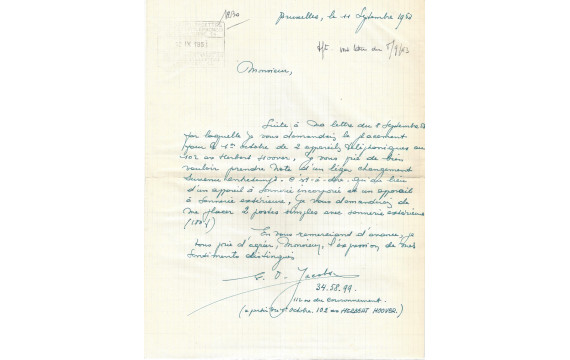 Bruxelles, le 11 Septembre 1961
Monsieur,
Suite à ma lettre du 2 Septembre
par laquelle je vous demandais le placement
pour le 1er octobre de 2 appareils téléphoniques au
102 av Herbert Hoover, je vous prie de bien
vouloir prendre note d'un léger changement
survenu entretemps. C'est-à-dire qu'au lieu
d'un appareil à sonnerie incorporée et un appareil
à sonnerie extérieure, je vous demanderai de
me placer 2 postes simples avec sonnerie extérieure
En vous remerciant d'avance, je
vous prie d'agréer, Monsieur, l'expression de mes
sentiments distingués
Jacobs
34.58.99.
112 av du Couronnement
(à partir du 1er octobre. 102 av HERBERT HOOVER.)